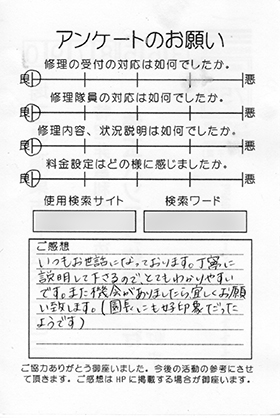 アンケートのお願い
修理の受付の対応は如何でしたか。
良 悪
修理隊員の対応は如何でしたか。
良 悪
修理内容、状況説明は如何でしたか。
良 悪
料金設定はどの様に感じましたか。
良 悪
使用検索サイト 検索ワード
ご感想
いつもお世話になっております。丁寧に
説明して下さるのでとてもわかりやすい
です。また機会がありましたら宜しくお願
い致します。(園長にも好印象だった
ようです)
ご協力ありがとう御座いました。今後の活動の参考にさせ
て頂きます。ご感想はHPに掲載する場合が御座います。